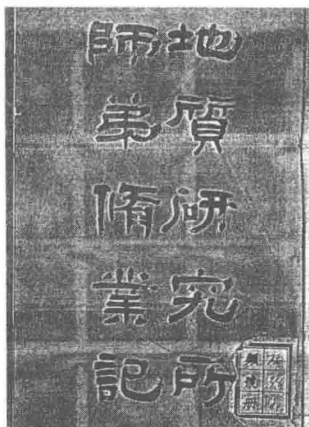 地質研究所
師弟脩業記